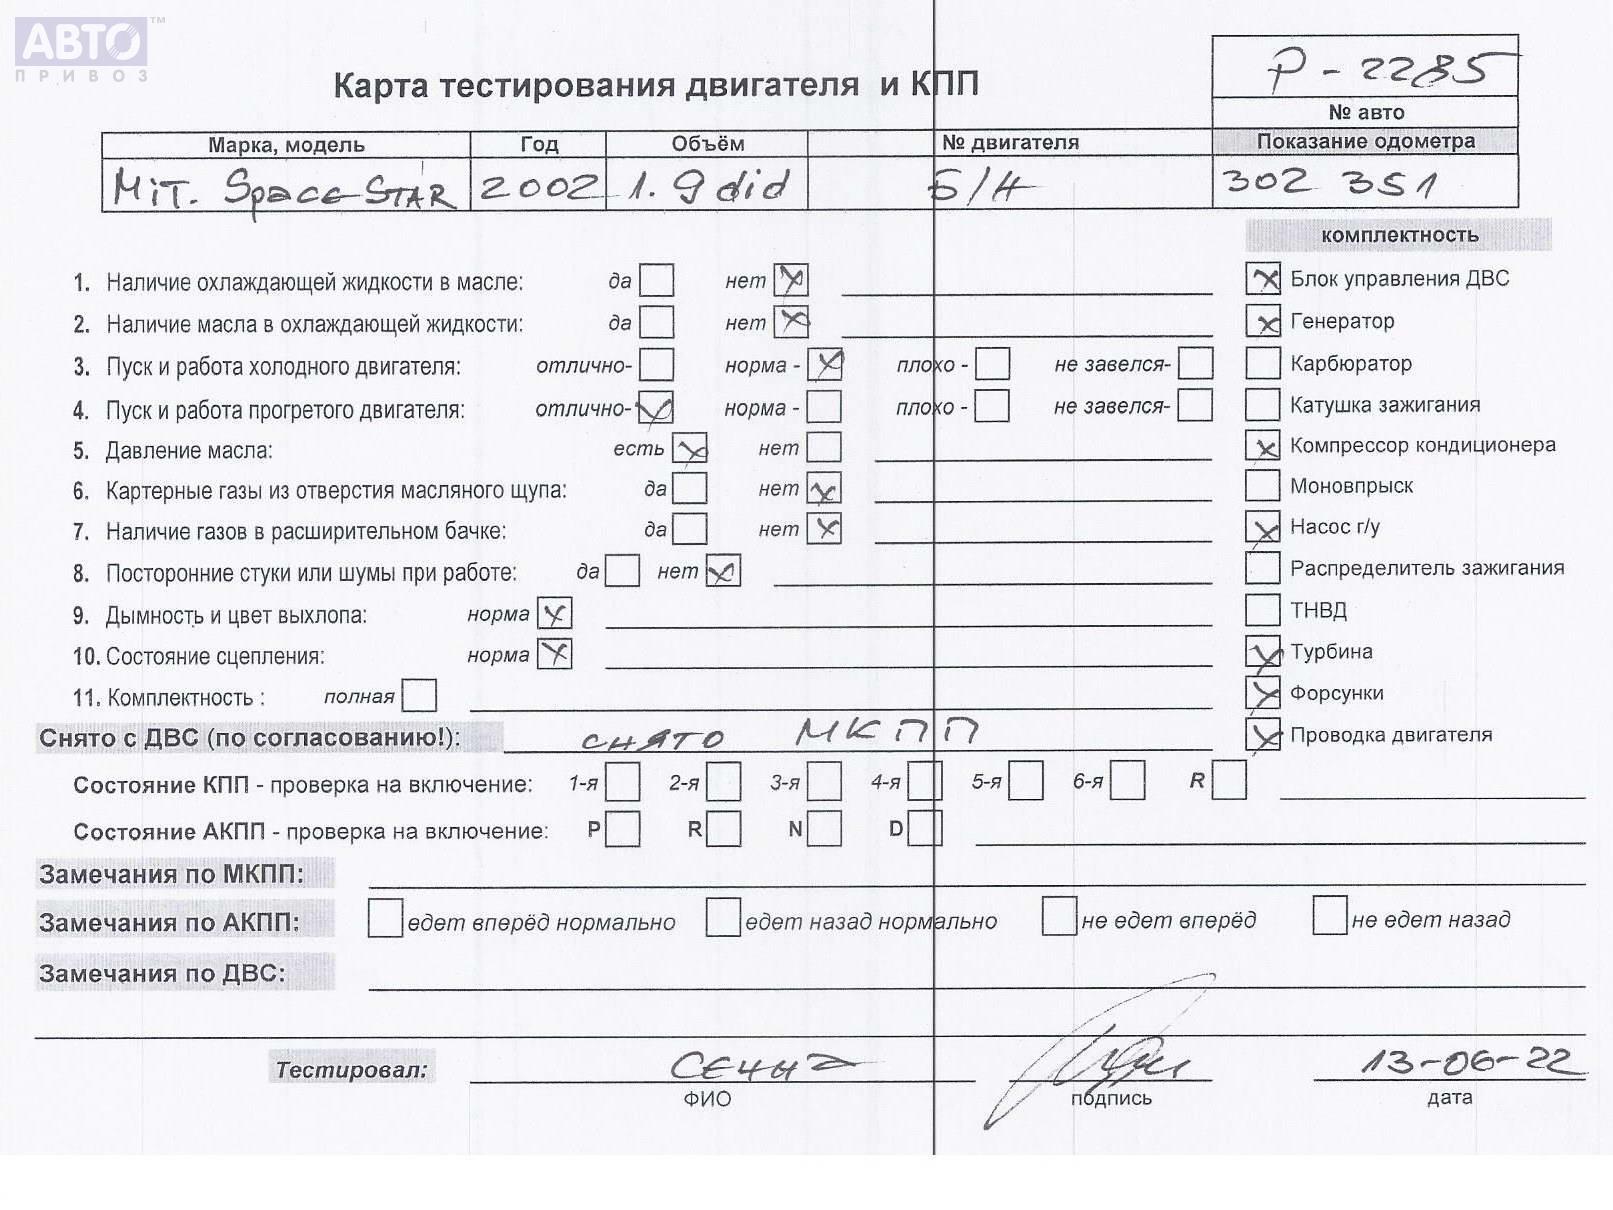 АВТО™
ПРИВОЗ
Карта тестирования двигателя и КПП
Р-2285
№ авто
Марка, модель Год Объём № двигателя Показание одометра
MiT. Space STAR 2002 1.9 did Б/Н 302 351
комплектность
1. Наличие охлаждающей жидкости в масле: да нет Блок управления ДВС
2. Наличие масла в охлаждающей жидкости: да нет Генератор
3. Пуск и работа холодного двигателя: отлично- норма - плохо - не завелся- Карбюратор
4. Пуск и работа прогретого двигателя: отлично- норма - плохо - не завелся- Катушка зажигания
5. Давление масла: есть нет Компрессор кондиционера
6. Картерные газы из отверстия масляного щупа: да нет Моновпрыск
7. Наличие газов в расширительном бачке: да нет Насос г/у
8. Посторонние стуки или шумы при работе: да нет Распределитель зажигания
9. Дымность и цвет выхлопа: норма ТНВД
10. Состояние сцепления: норма Турбина
11. Комплектность : полная Форсунки
Снято с ДВС (по согласованию!): снято МКПП Проводка двигателя
Состояние КПП - проверка на включение: 1-я 2-я 3-я 4-я 5-я 6-я R
Состояние АКПП - проверка на включение: P R N D
Замечания по МКПП:
Замечания по АКПП: едет вперёд нормально едет назад нормально не едет вперёд не едет назад
Замечания по ДВС:
Тестировал: 13-06-22
ФИО подпись дата